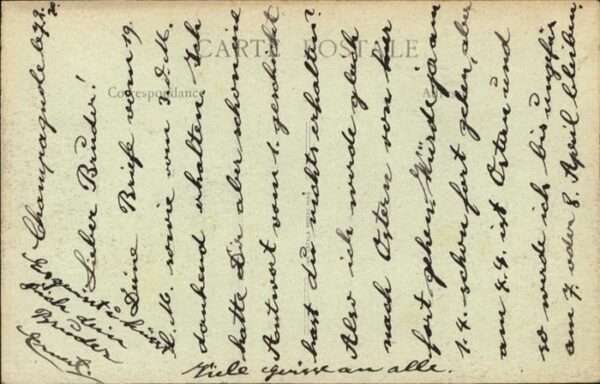 CARTE POSTALE
Correspondance
Champagnole
Lieber Bruder!
Deine Briefe vom 19.
d. M. sowie vom 3. d. M.
dankend erhalten. Ich
hatte Dir aber schon eine
Antwort vom 1. geschickt
hast du nichts erhalten?
Also ich werde gleich
nach Ostern von hier
fort gehen. Würde ja am
1.4. schon fort gehen, aber
am 4.4. ist Ostern und
so werde ich bis ungefär
am 7. oder 8. April bleiben.
Es grüsst u küsst
Dich dein
Bruder
Ernest.
Viele grüsse an alle.